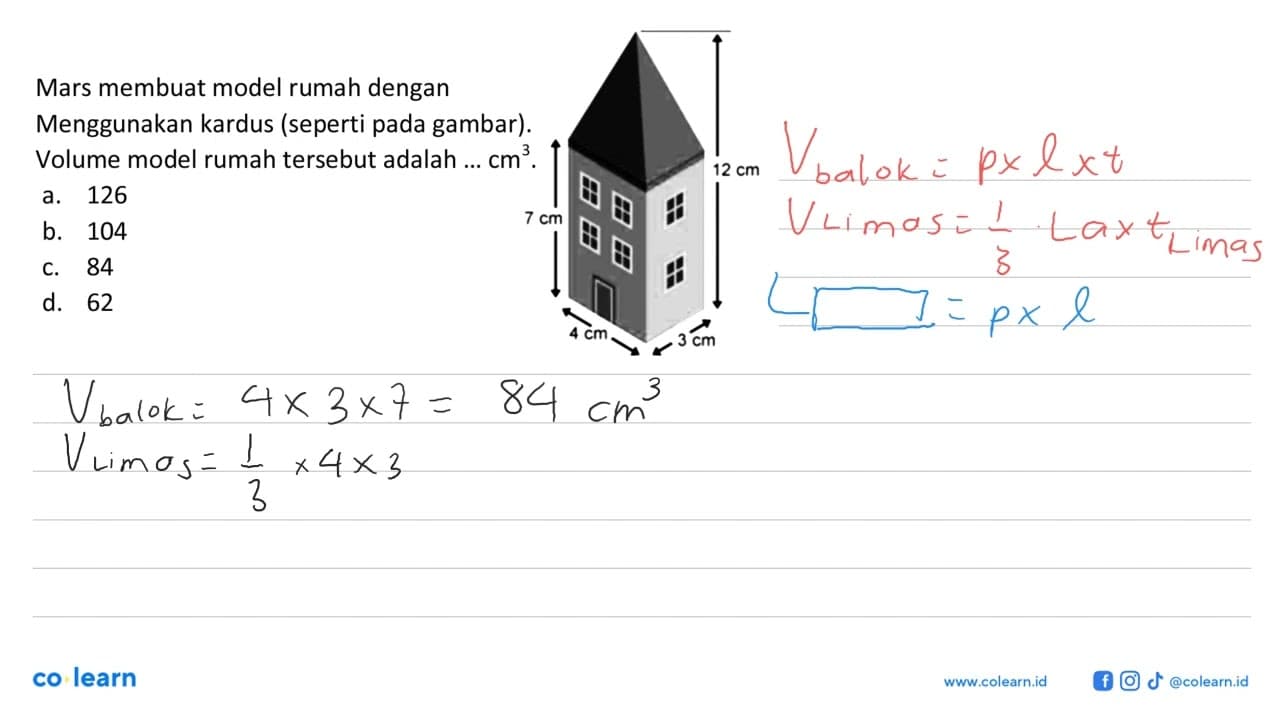 Mars membuat model rumah dengan
Menggunakan kardus (seperti pada gambar).
Volume model rumah tersebut adalah ... cm³.
a. 126
b. 104
c. 84
d. 62
7 cm
12 cm
4 cm
3 cm
V balok = p x l x t
V Limas = 1/3 · La x t Limas
= p x l
V balok = 4 x 3 x 7 = 84 cm³
V Limas = 1/3 x 4 x 3
co learn
www.colearn.id
@colearn.id